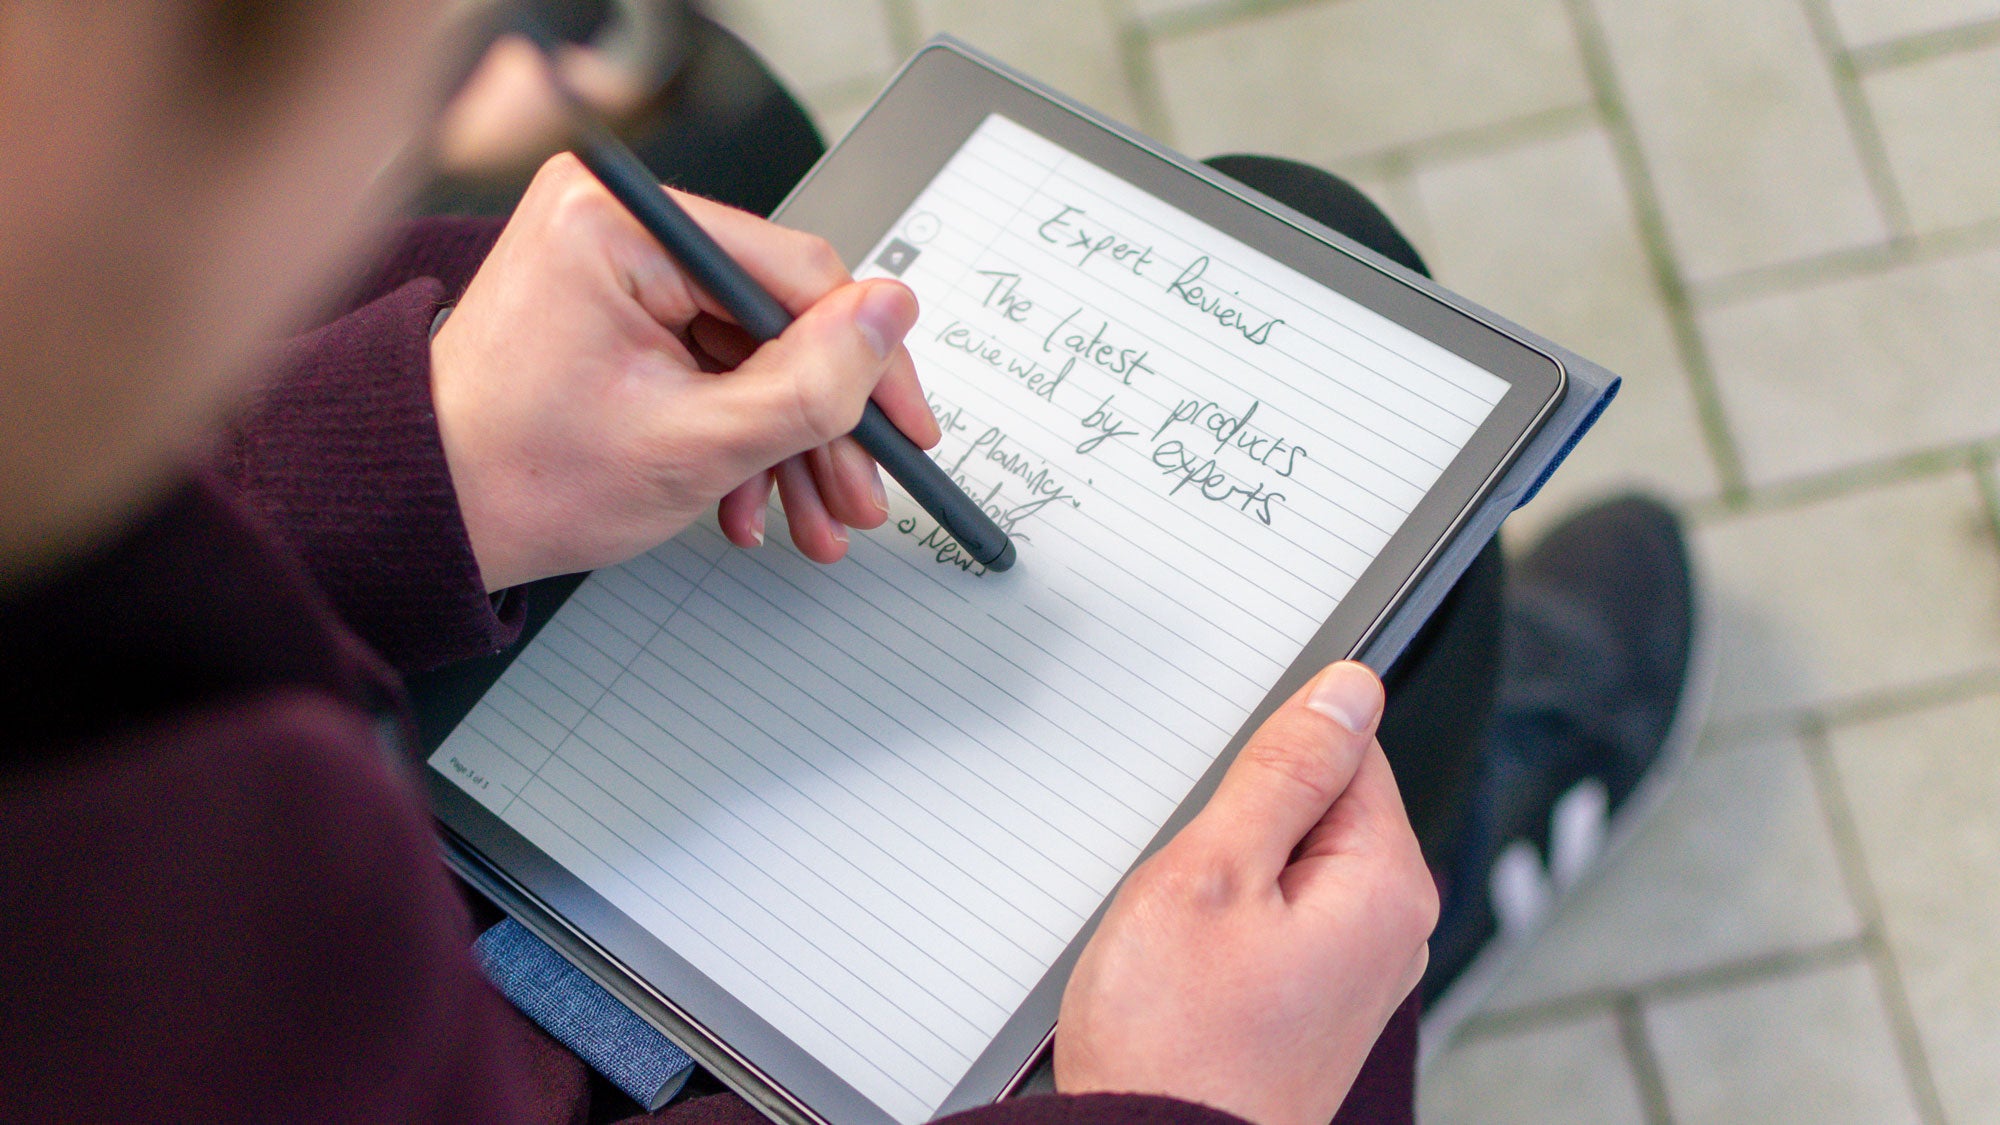 Expert Reviews
The latest products
reviewed by experts
Planning:
o News
Page 3 of 3